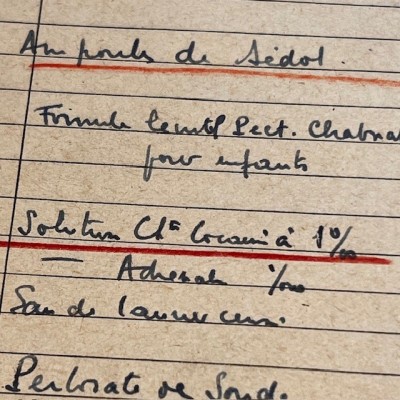 Ampoules de Sédol.
Formule Lenitif Pect. Chabna
pour enfants
Solution Chte Cocaine à 1%
— Adrenal ‰
Eau de laurier cerise.
Perborate de Soude.